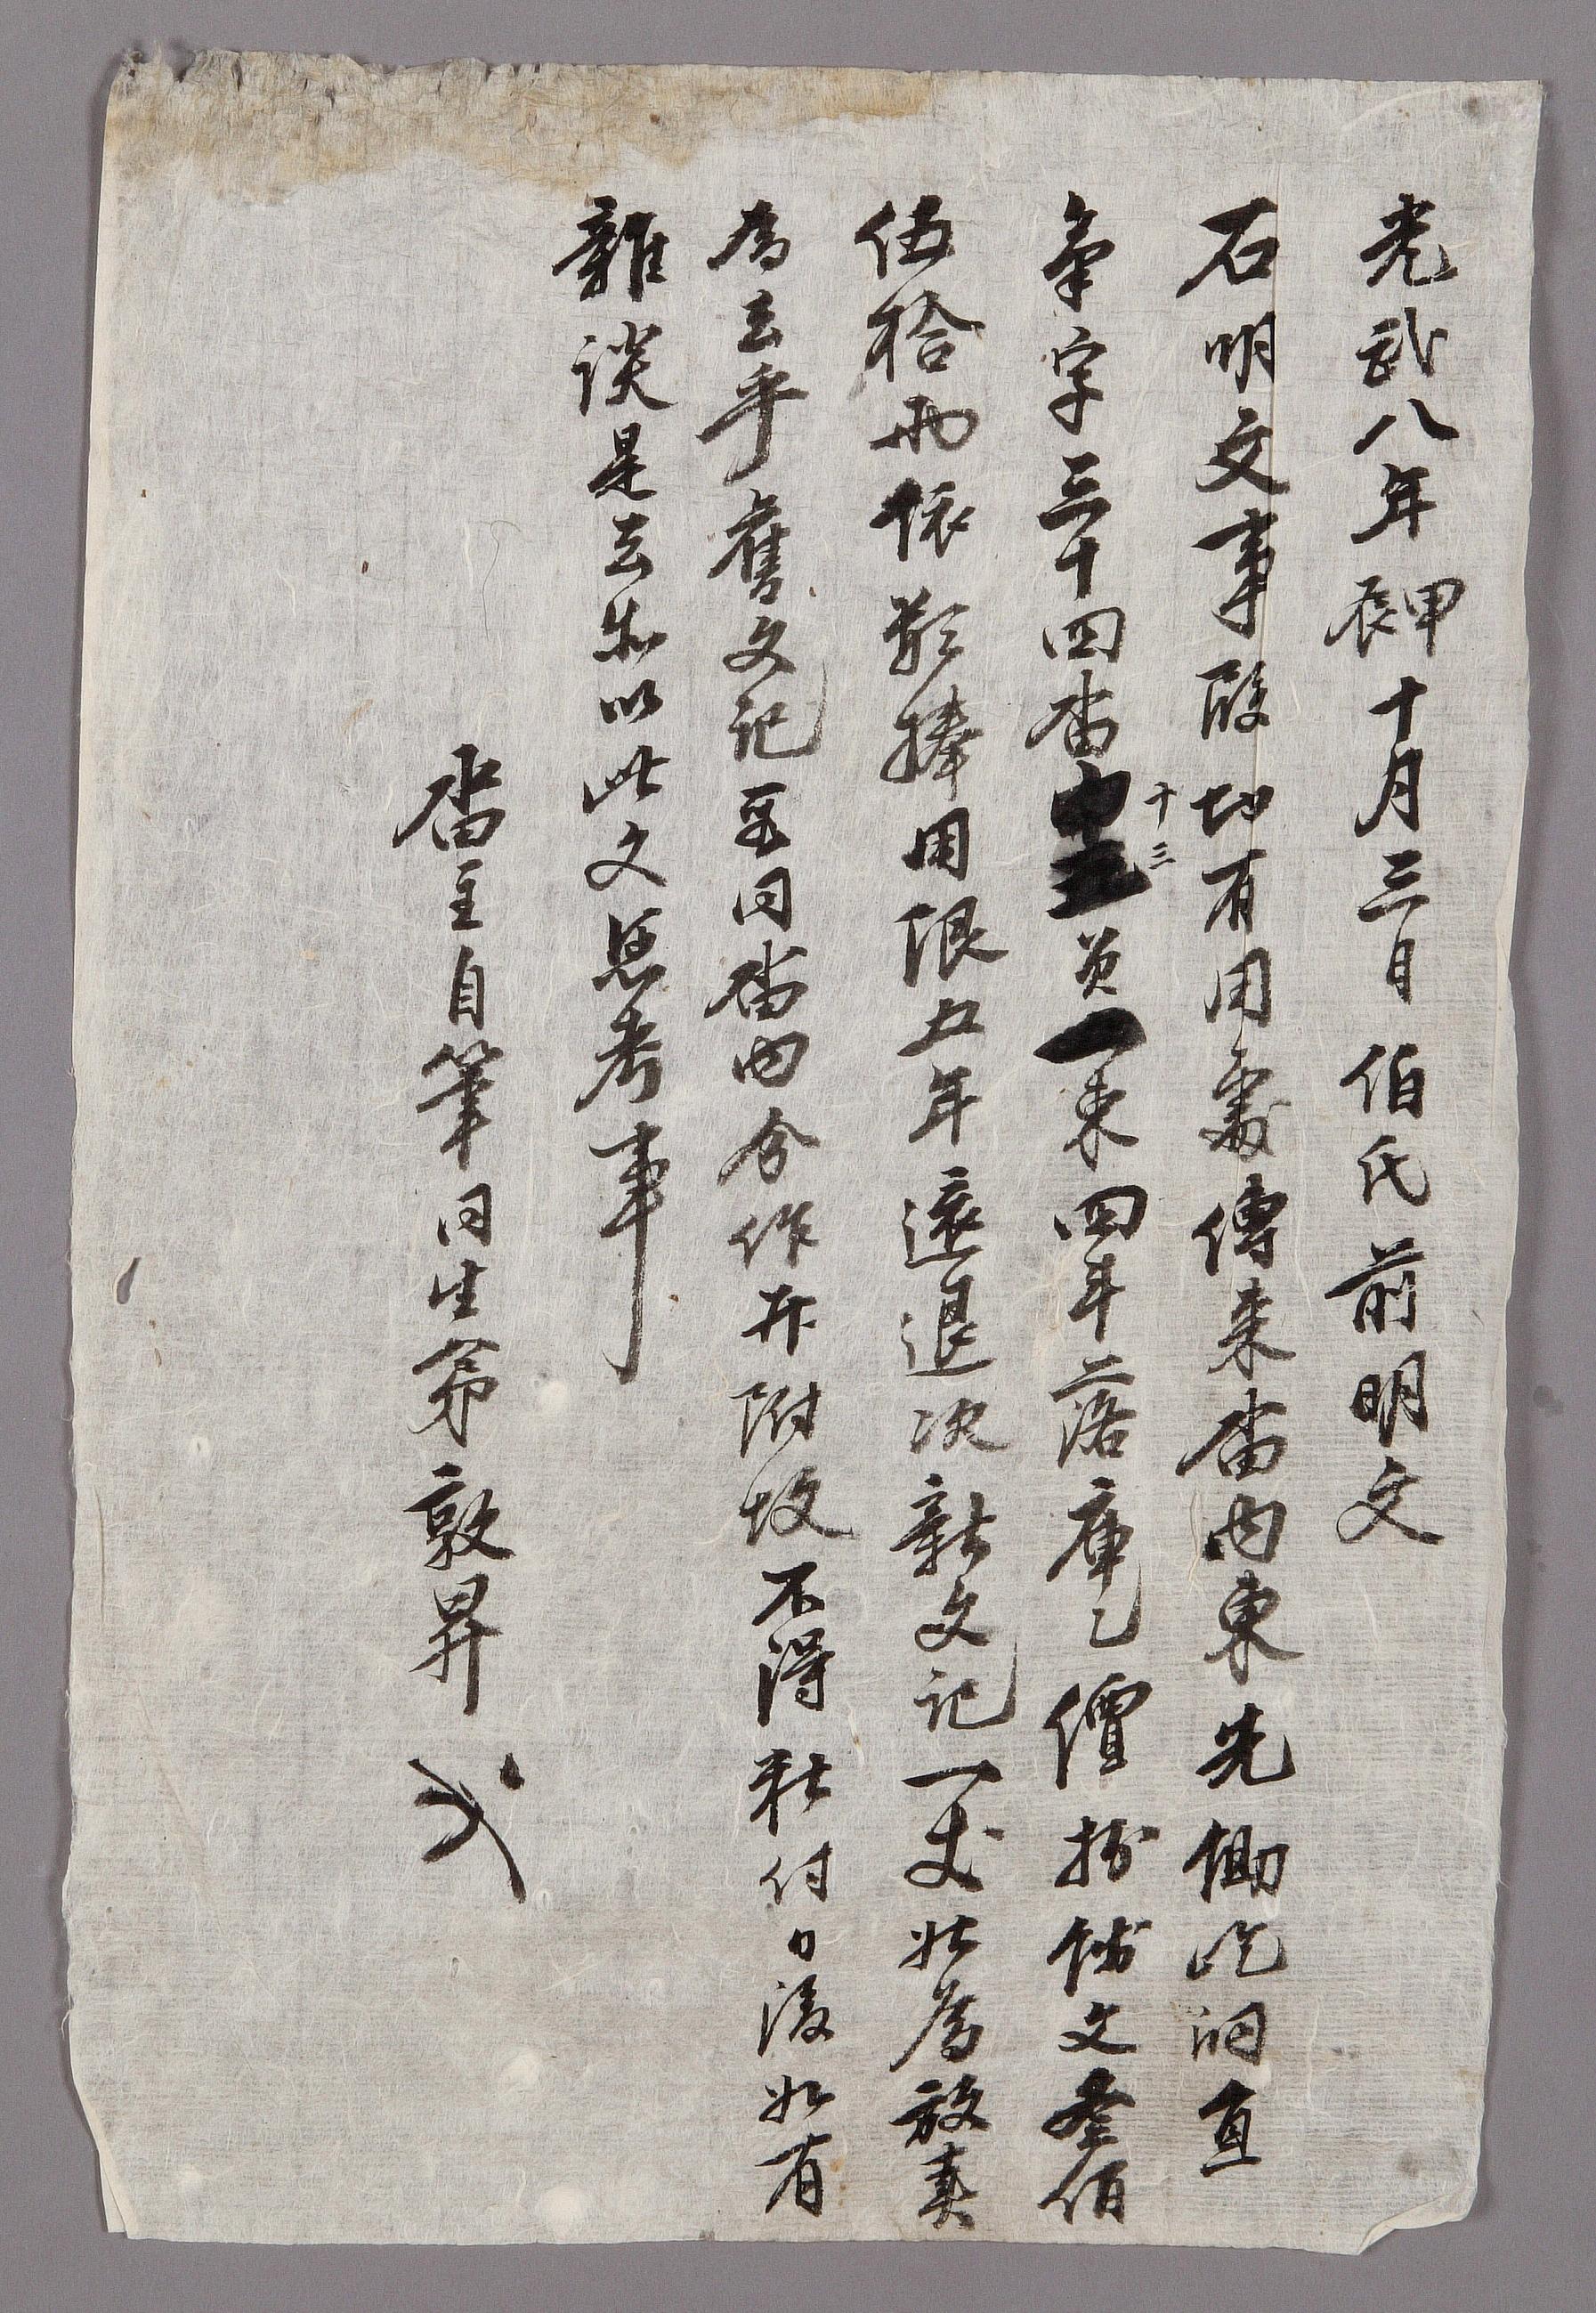 光武八年甲辰十月三日伯氏前明文
右明文事段切有用處傳来畓內東先㐥氵同員
字三十四畓十三負一束四斗落庫乙價折錢文叄佰
伍拾両依數捧用限五年還退次新文記一丈比為放賣
為去乎舊文記至同畓內合作幷附故不得許付日後如有
雜談是去等以此文憑考事
畓主自筆同生弟敦昇